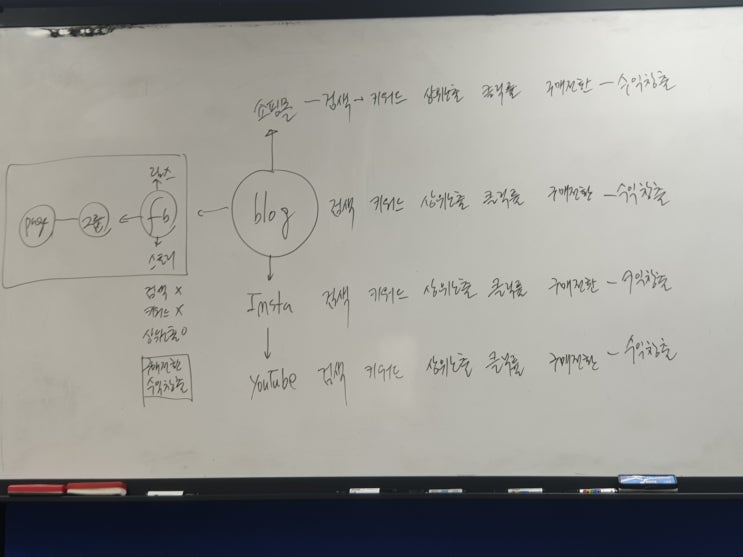 쇼핑몰 - 검색 → 키워드 상위노출 클릭률 구매전환 - 수익창출
릴스
page 그룹 fb blog 검색 키워드 상위노출 클릭률 구매전환 - 수익창출
스토리
Insta 검색 키워드 상위노출 클릭률 구매전환 - 수익창출
검색 X
키워드 X
상위노출 O
YouTube 검색 키워드 상위노출 클릭률 구매전환 - 수익창출
구매전환
수익창출